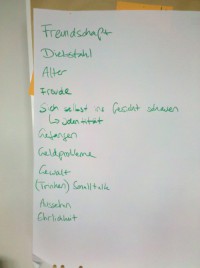 Freundschaft
Diebstahl
Alter
Freude
Sich selbst ins Gesicht schauen
↳ Identität
Gefangen
Geldprobleme
Gewalt
(Trinken) Smalltalk
Aussehn
Ehrlichkeit